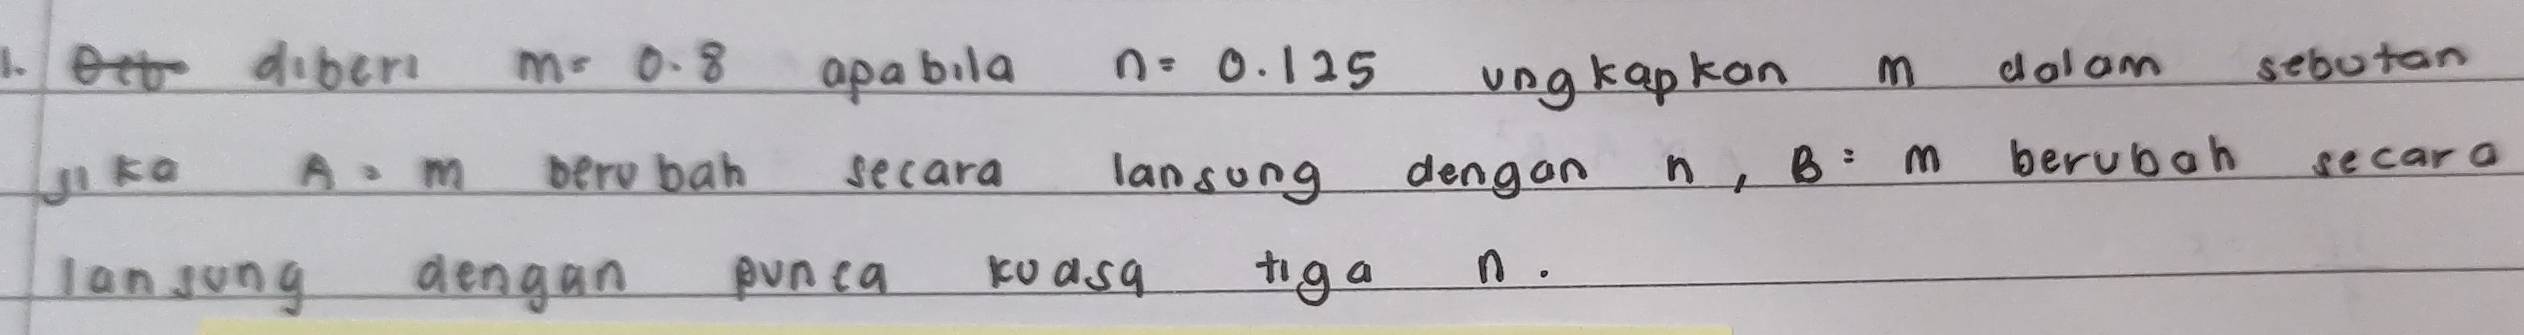 1. diberi m= 0.8 apabila n= 0.125 ungkapkan m dalam sebutan
jika A = m berubah secara lansung dengan n, B = m berubah secara
lansung dengan punca kuasa tiga n.